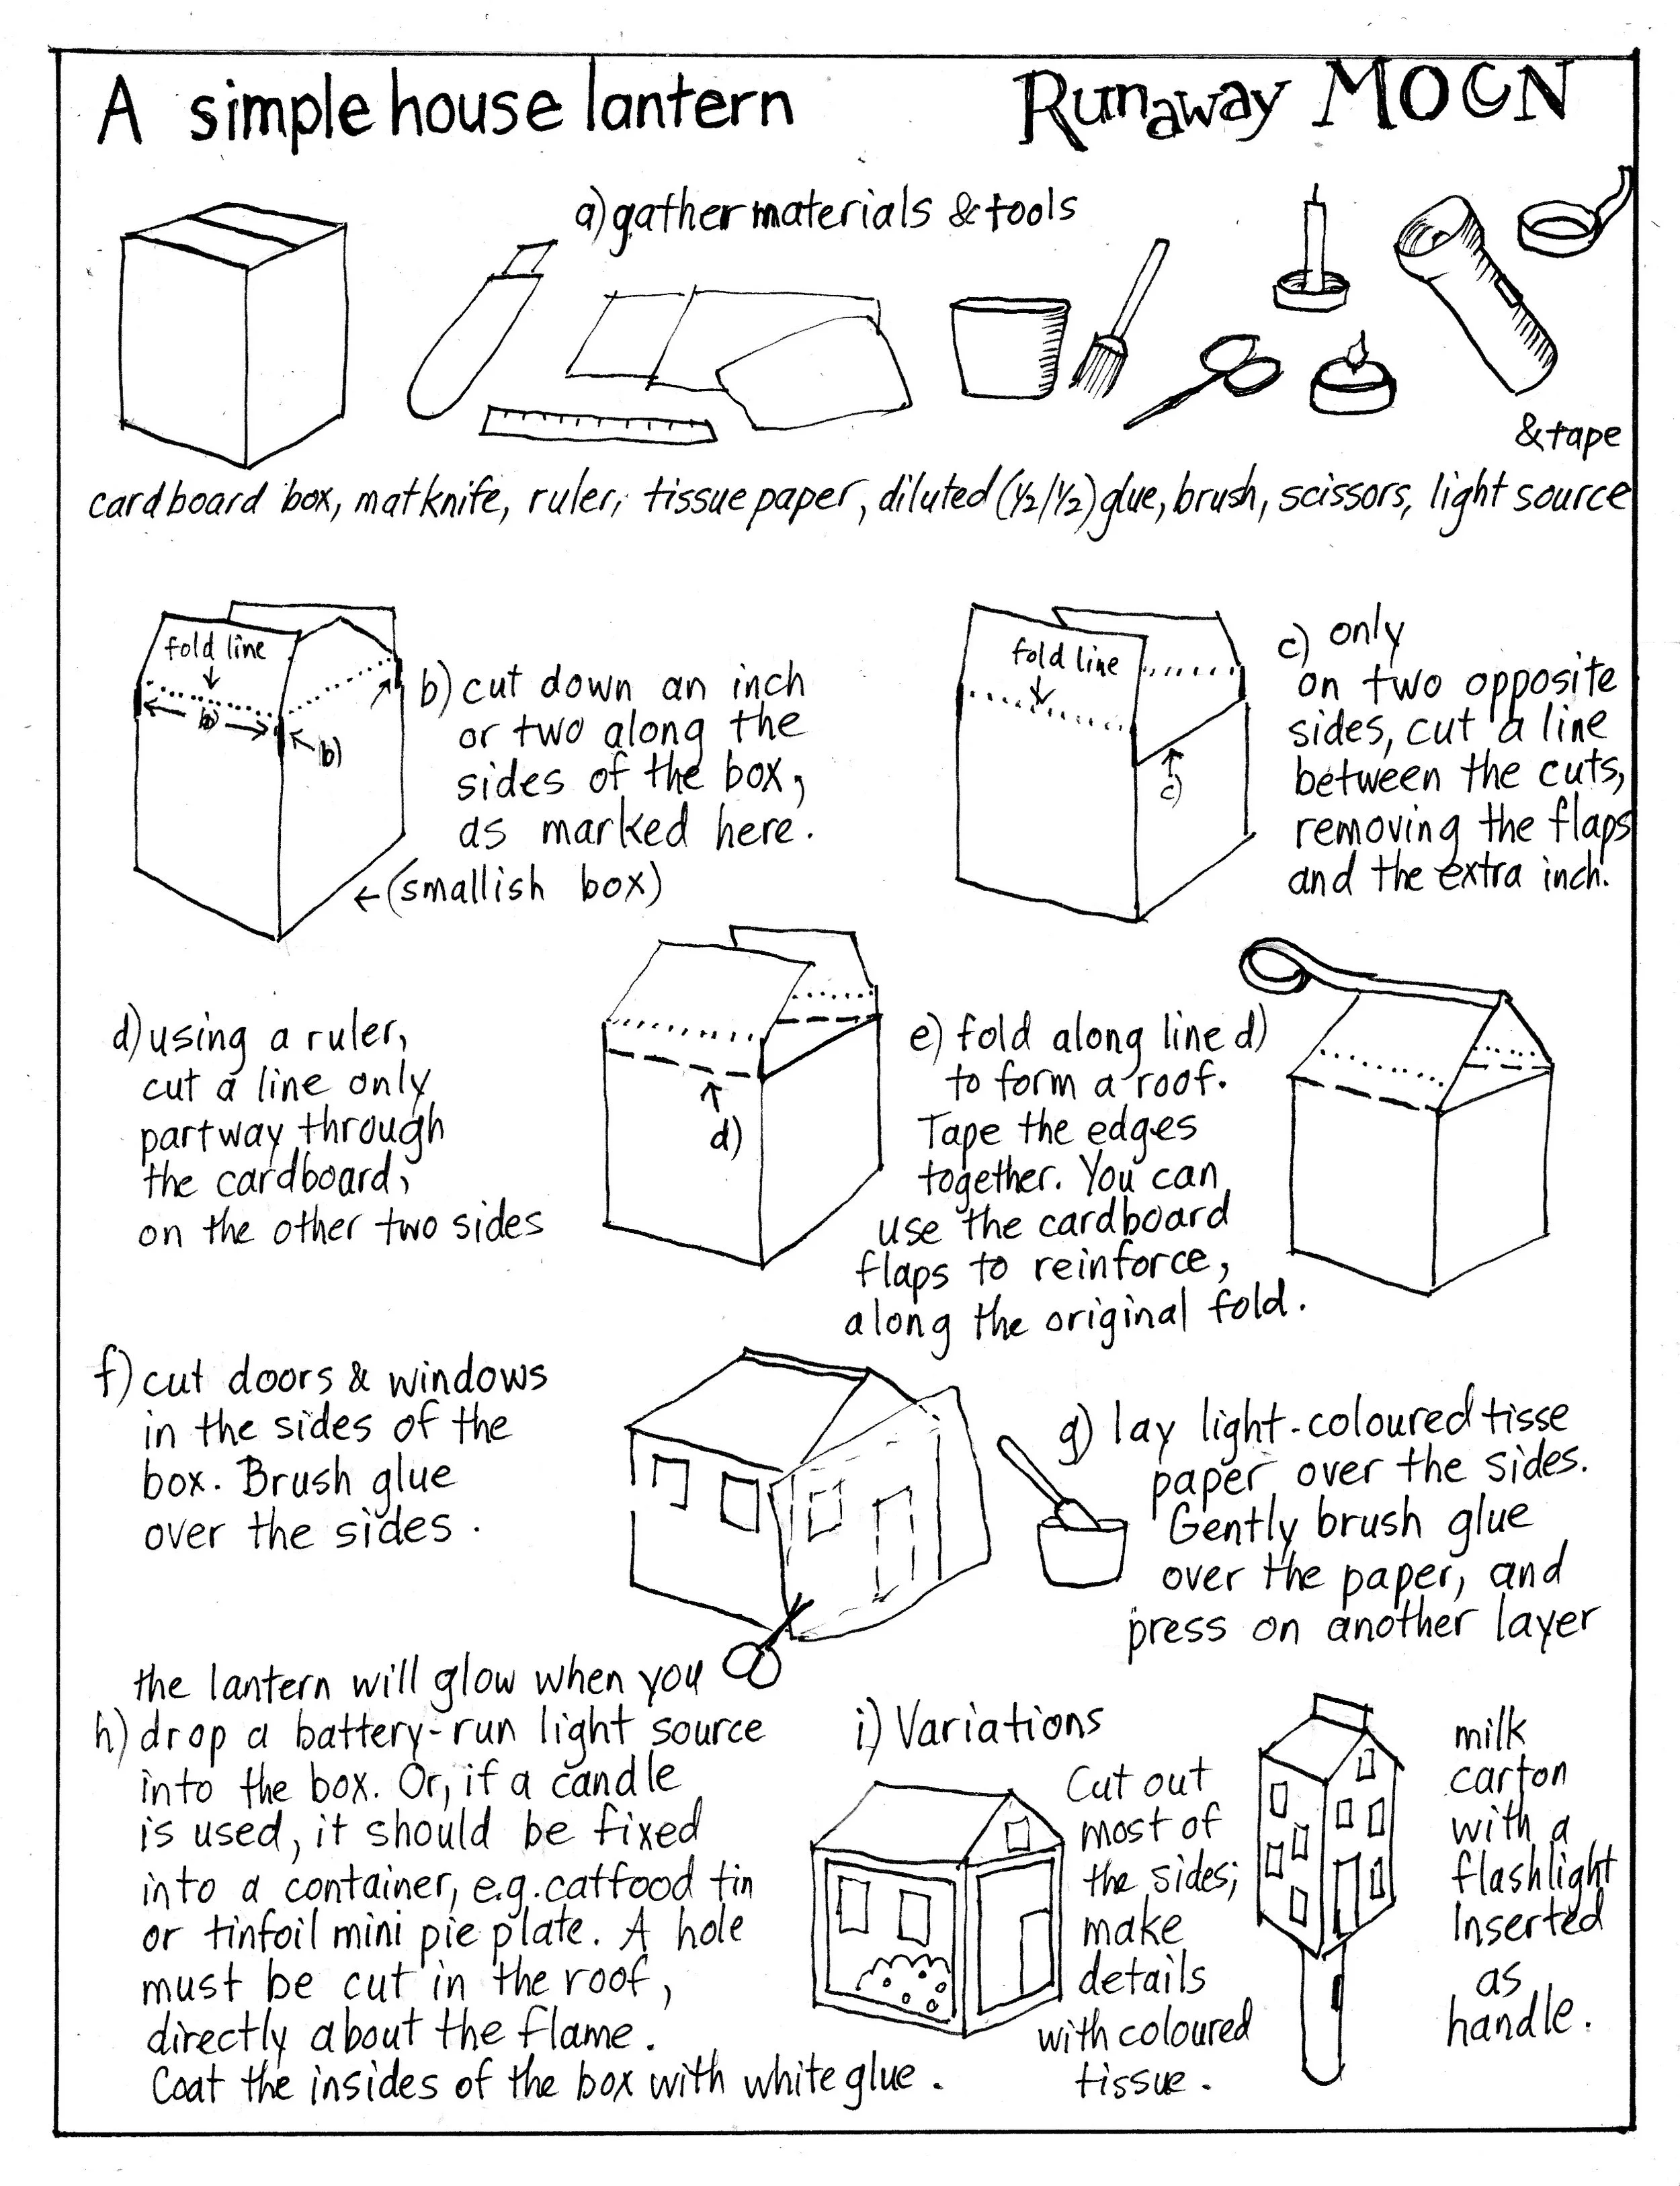 A simple house lantern
Runaway MOON
a) gather materials & tools
& tape
cardboard box, matknife, ruler, tissue paper, diluted (1/2/1/2) glue, brush, scissors, light source
fold line
b)
b)
b) cut down an inch
or two along the
sides of the box,
as marked here.
← (smallish box)
fold line
c)
c) only
on two opposite
sides, cut a line
between the cuts,
removing the flaps
and the extra inch.
d) using a ruler,
cut a line only
partway through
the cardboard,
on the other two sides
d)
e) fold along line d)
to form a roof.
Tape the edges
together. You can
use the cardboard
flaps to reinforce,
along the original fold.
f) cut doors & windows
in the sides of the
box. Brush glue
over the sides.
g) lay light-coloured tisse
paper over the sides.
Gently brush glue
over the paper, and
press on another layer
the lantern will glow when you
h) drop a battery-run light source
into the box. Or, if a candle
is used, it should be fixed
into a container, e.g. catfood tin
or tinfoil mini pie plate. A hole
must be cut in the roof,
directly about the flame.
Coat the insides of the box with white glue.
i) Variations
Cut out
most of
the sides;
make
details
with coloured
tissue.
milk
carton
with a
flashlight
Inserted
as
handle.